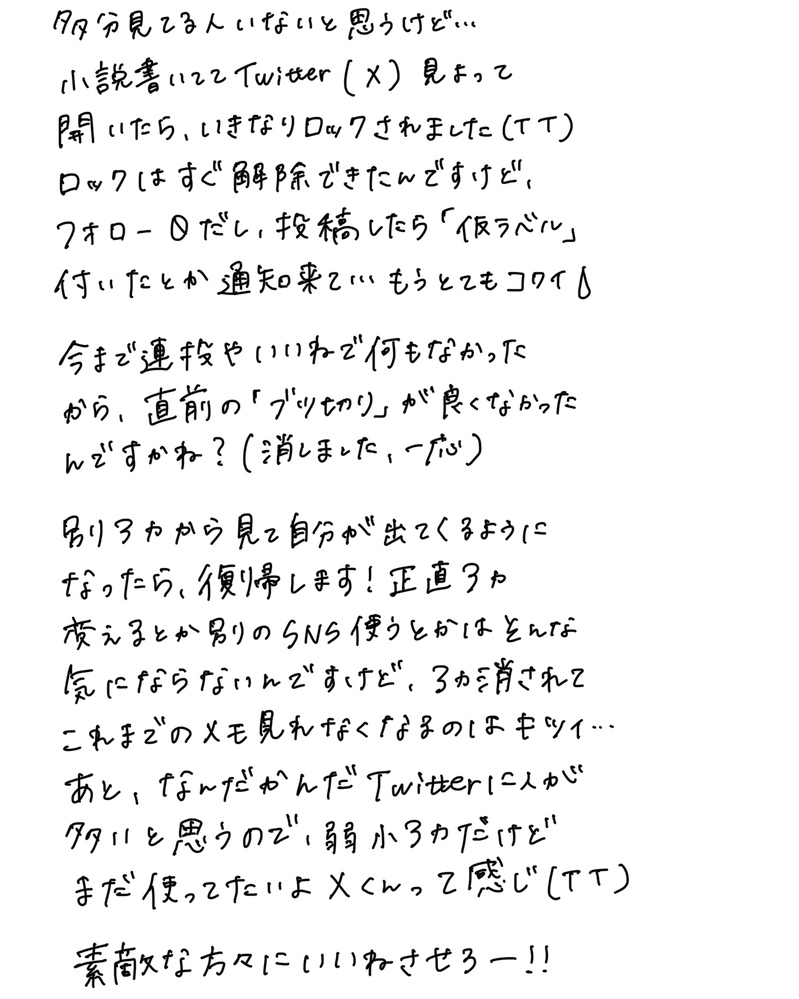 多分見てる人いないと思うけど…
小説書いててTwitter(X)見よって
開いたら、いきなりロックされました(TT)
ロックはすぐ解除できたんですけど、
フォロー0だし、投稿したら「仮ラベル」
付いたとか通知来て…もうとてもコワイ
今まで連投やいいねで何もなかった
から、直前の「ブツ切り」が良くなかった
んですかね?(消しました、一応)
別アカから見て自分が出てくるように
なったら、復帰します!正直アカ
変えるとか別のSNS使うとかはそんな
気にならないんですけど、アカ消されて
これまでのメモ見れなくなるのはキツイ…
あと、なんだかんだTwitterに人が
多いと思うので、弱小アカだけど
まだ使ってたいよXくんって感じ(TT)
素敵な方々にいいねさせろー!!